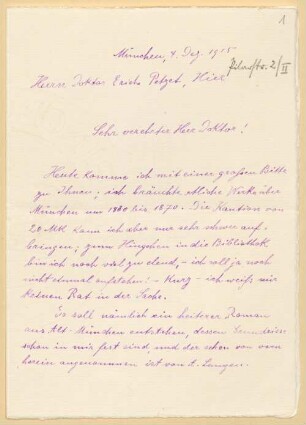 1
München, 4. Dez. 1915
2/II
Herrn Doktor Erich Petzet, Hier
Sehr verehrter Herr Doktor!
Heute komme ich mit einer großen Bitte
zu Ihnen; ich bräuchte etliche Werke über
München um 1860 bis 1870. Die Kaution von
20 MK kann ich aber nur sehr schwer auf-
bringen; zum Hingehen in die Bibliothek
bin ich noch viel zu elend, - ich soll ja noch
nicht einmal aufstehn! - Kurz - ich weiß mir
keinen Rat in der Sache.
Es soll nämlich ein heiterer Roman
aus Alt-München entstehen, dessen
schon in mir fest sind, und der schon von vorn
herein angenommen ist von A. Langen.